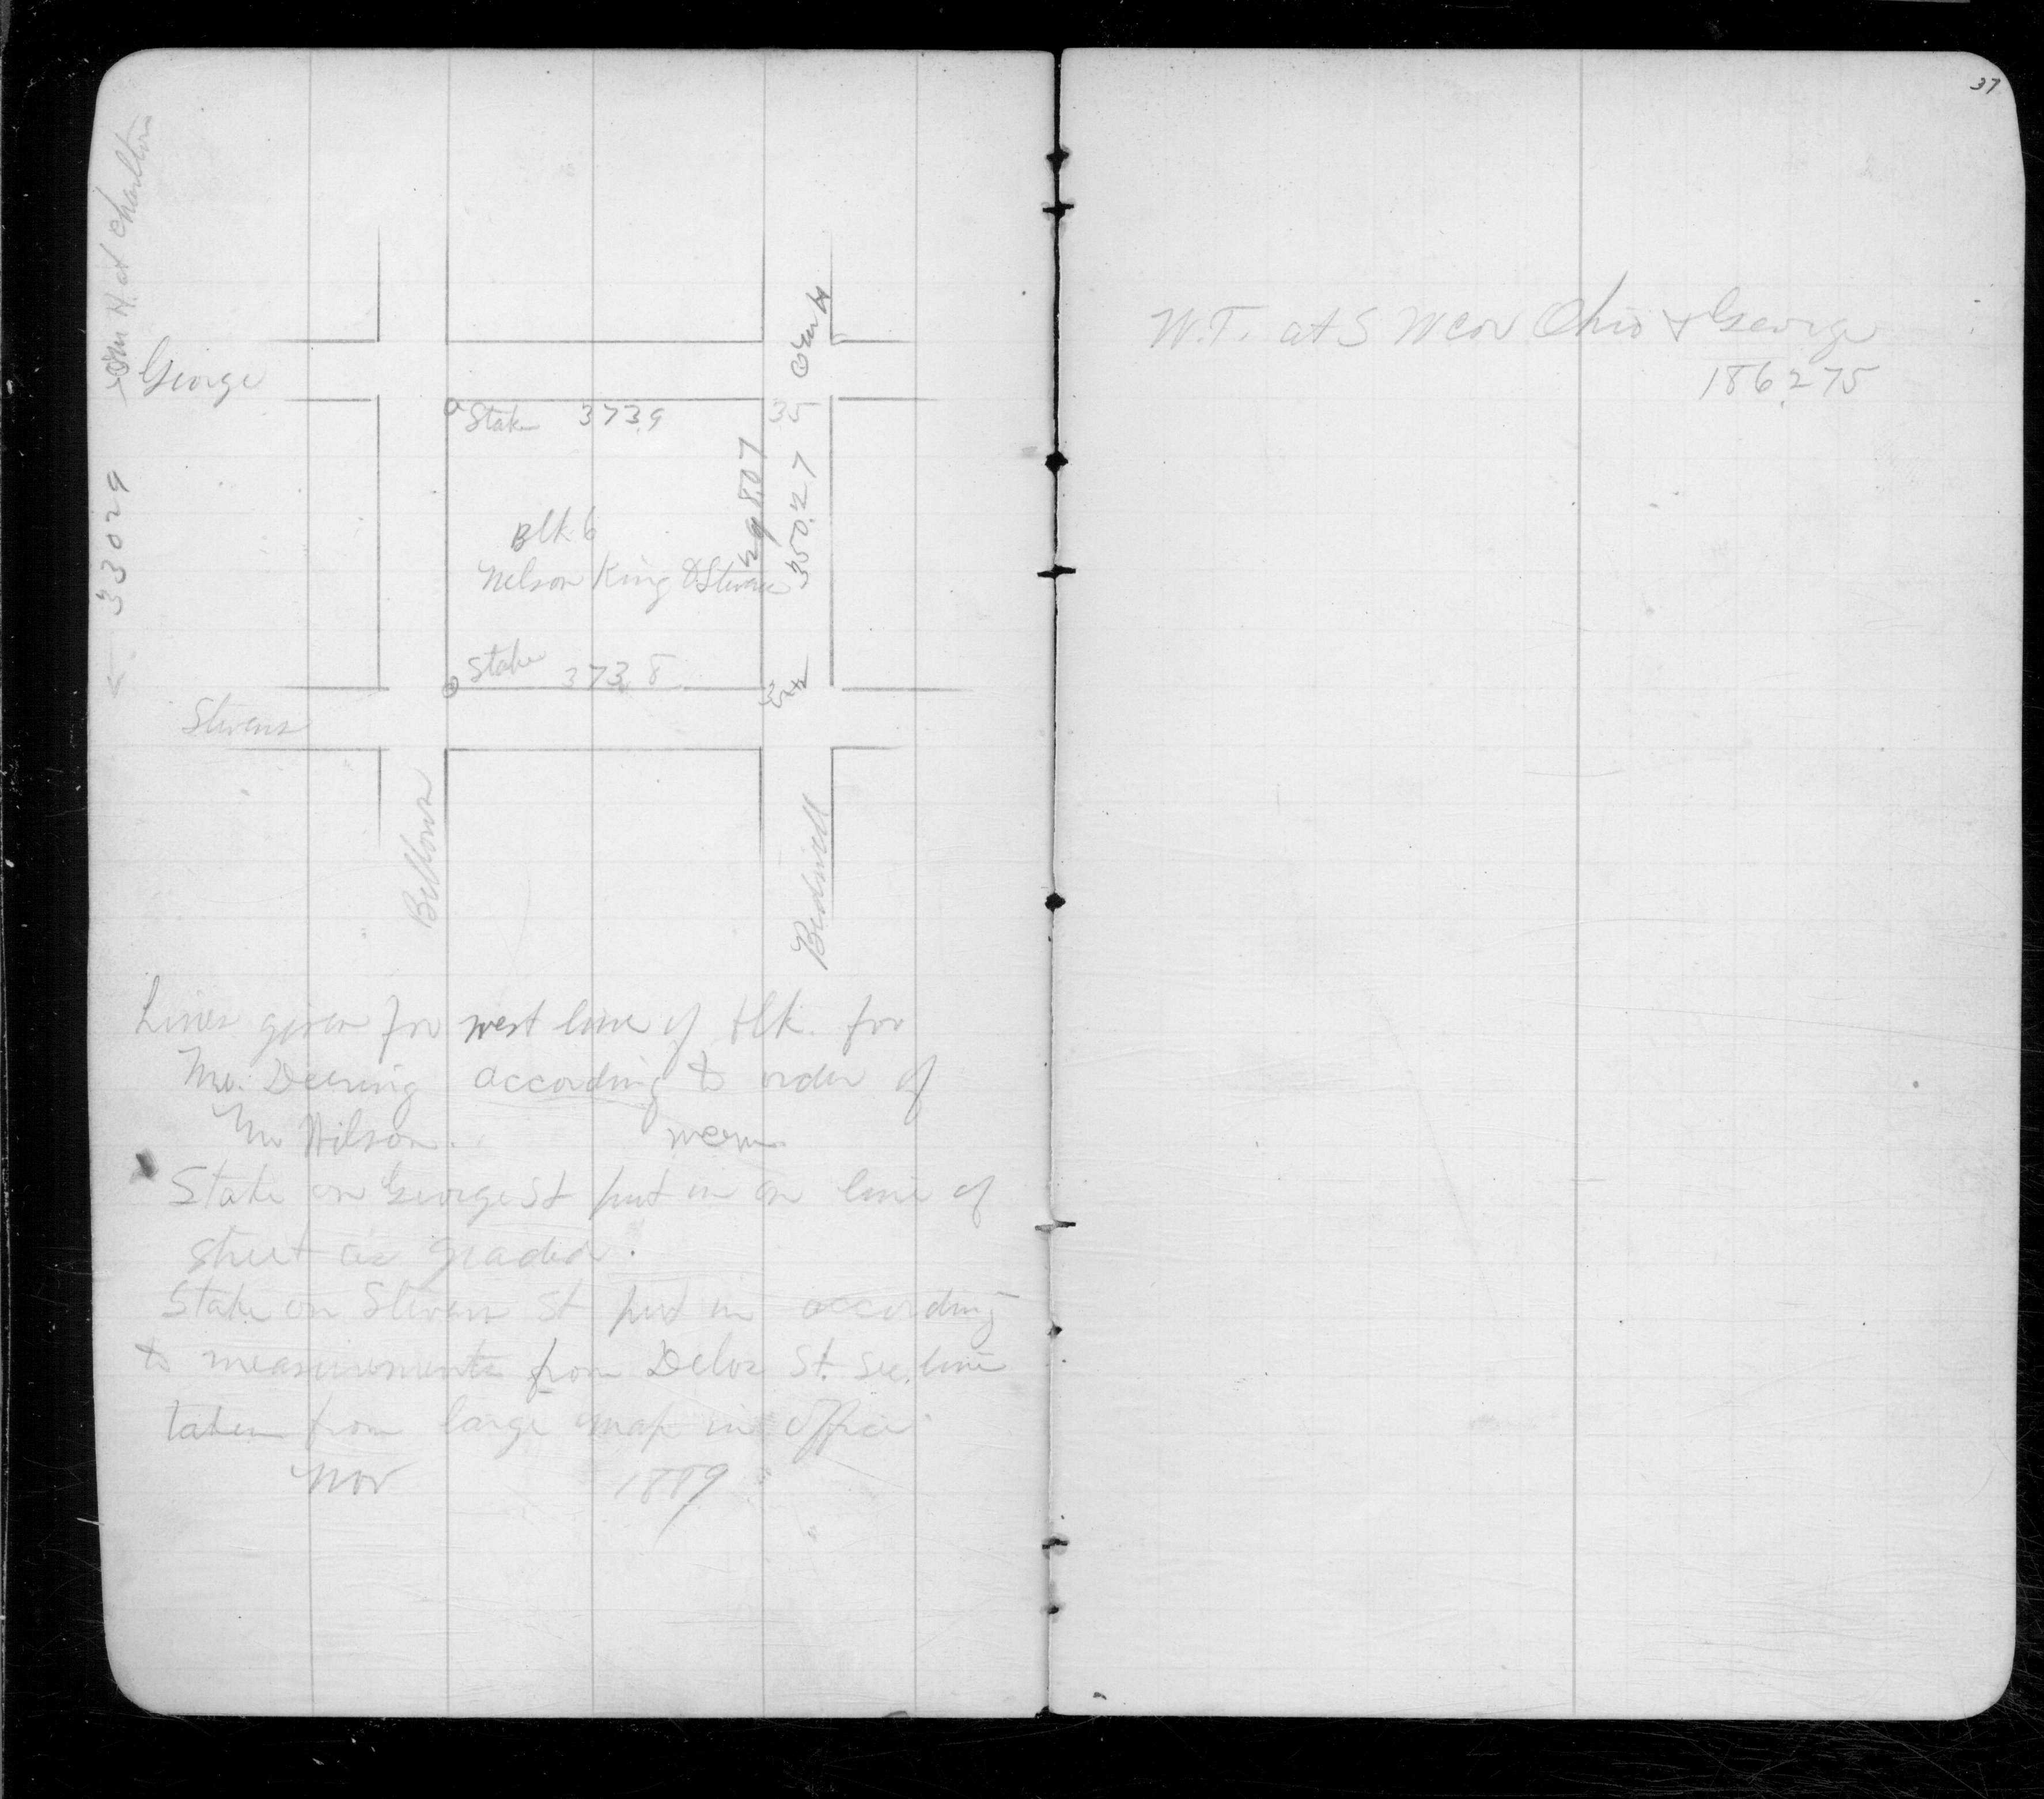 at Charlton
George
33029
Stake 373.9
35
298.07
350.27
Blk 6
Nelson King & Stevens
Stake 373.8
Stevens
Bellows
Bidwell
Lines given for west line of blk. for
Mr. Deering according to order of
Mr Wilson.
Stake on George St put in on line of
street as graded.
Stake on Stevens St put in according
to measurements from Delos St. Sec. line
taken from large map in office
Nov 1889
37
W.T. at S W Cor Ohio & George
186.275